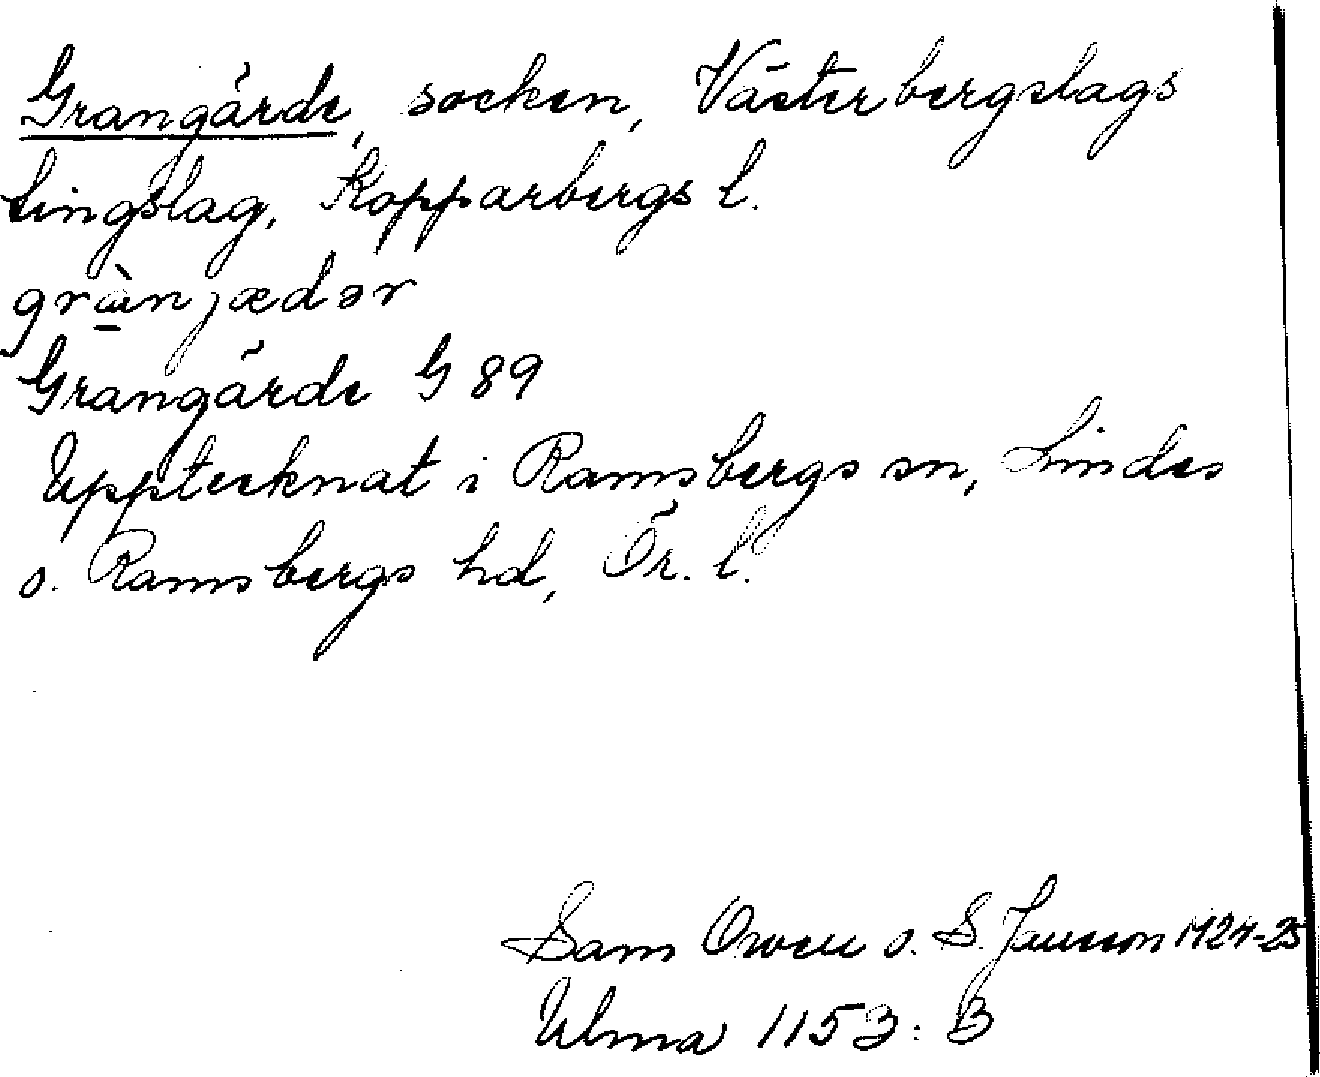 Grangärde, socken, Västerbergslags
tingslag, Kopparbergs l.
grànjædər
Grangärde G 89
Upptecknat i Ramsbergs sn, Lindes
o. Ramsbergs hd, Ör. l.
Sam Owen o. S. Jansson 1924-25
Ulma 1153: B